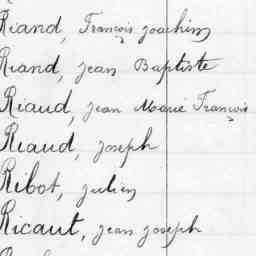 Riand, François Joachim
Riand, Jean Baptiste
Riaud, Jean Marie François
Riaud, Joseph
Ribot, Julien
Ricaut, Jean Joseph